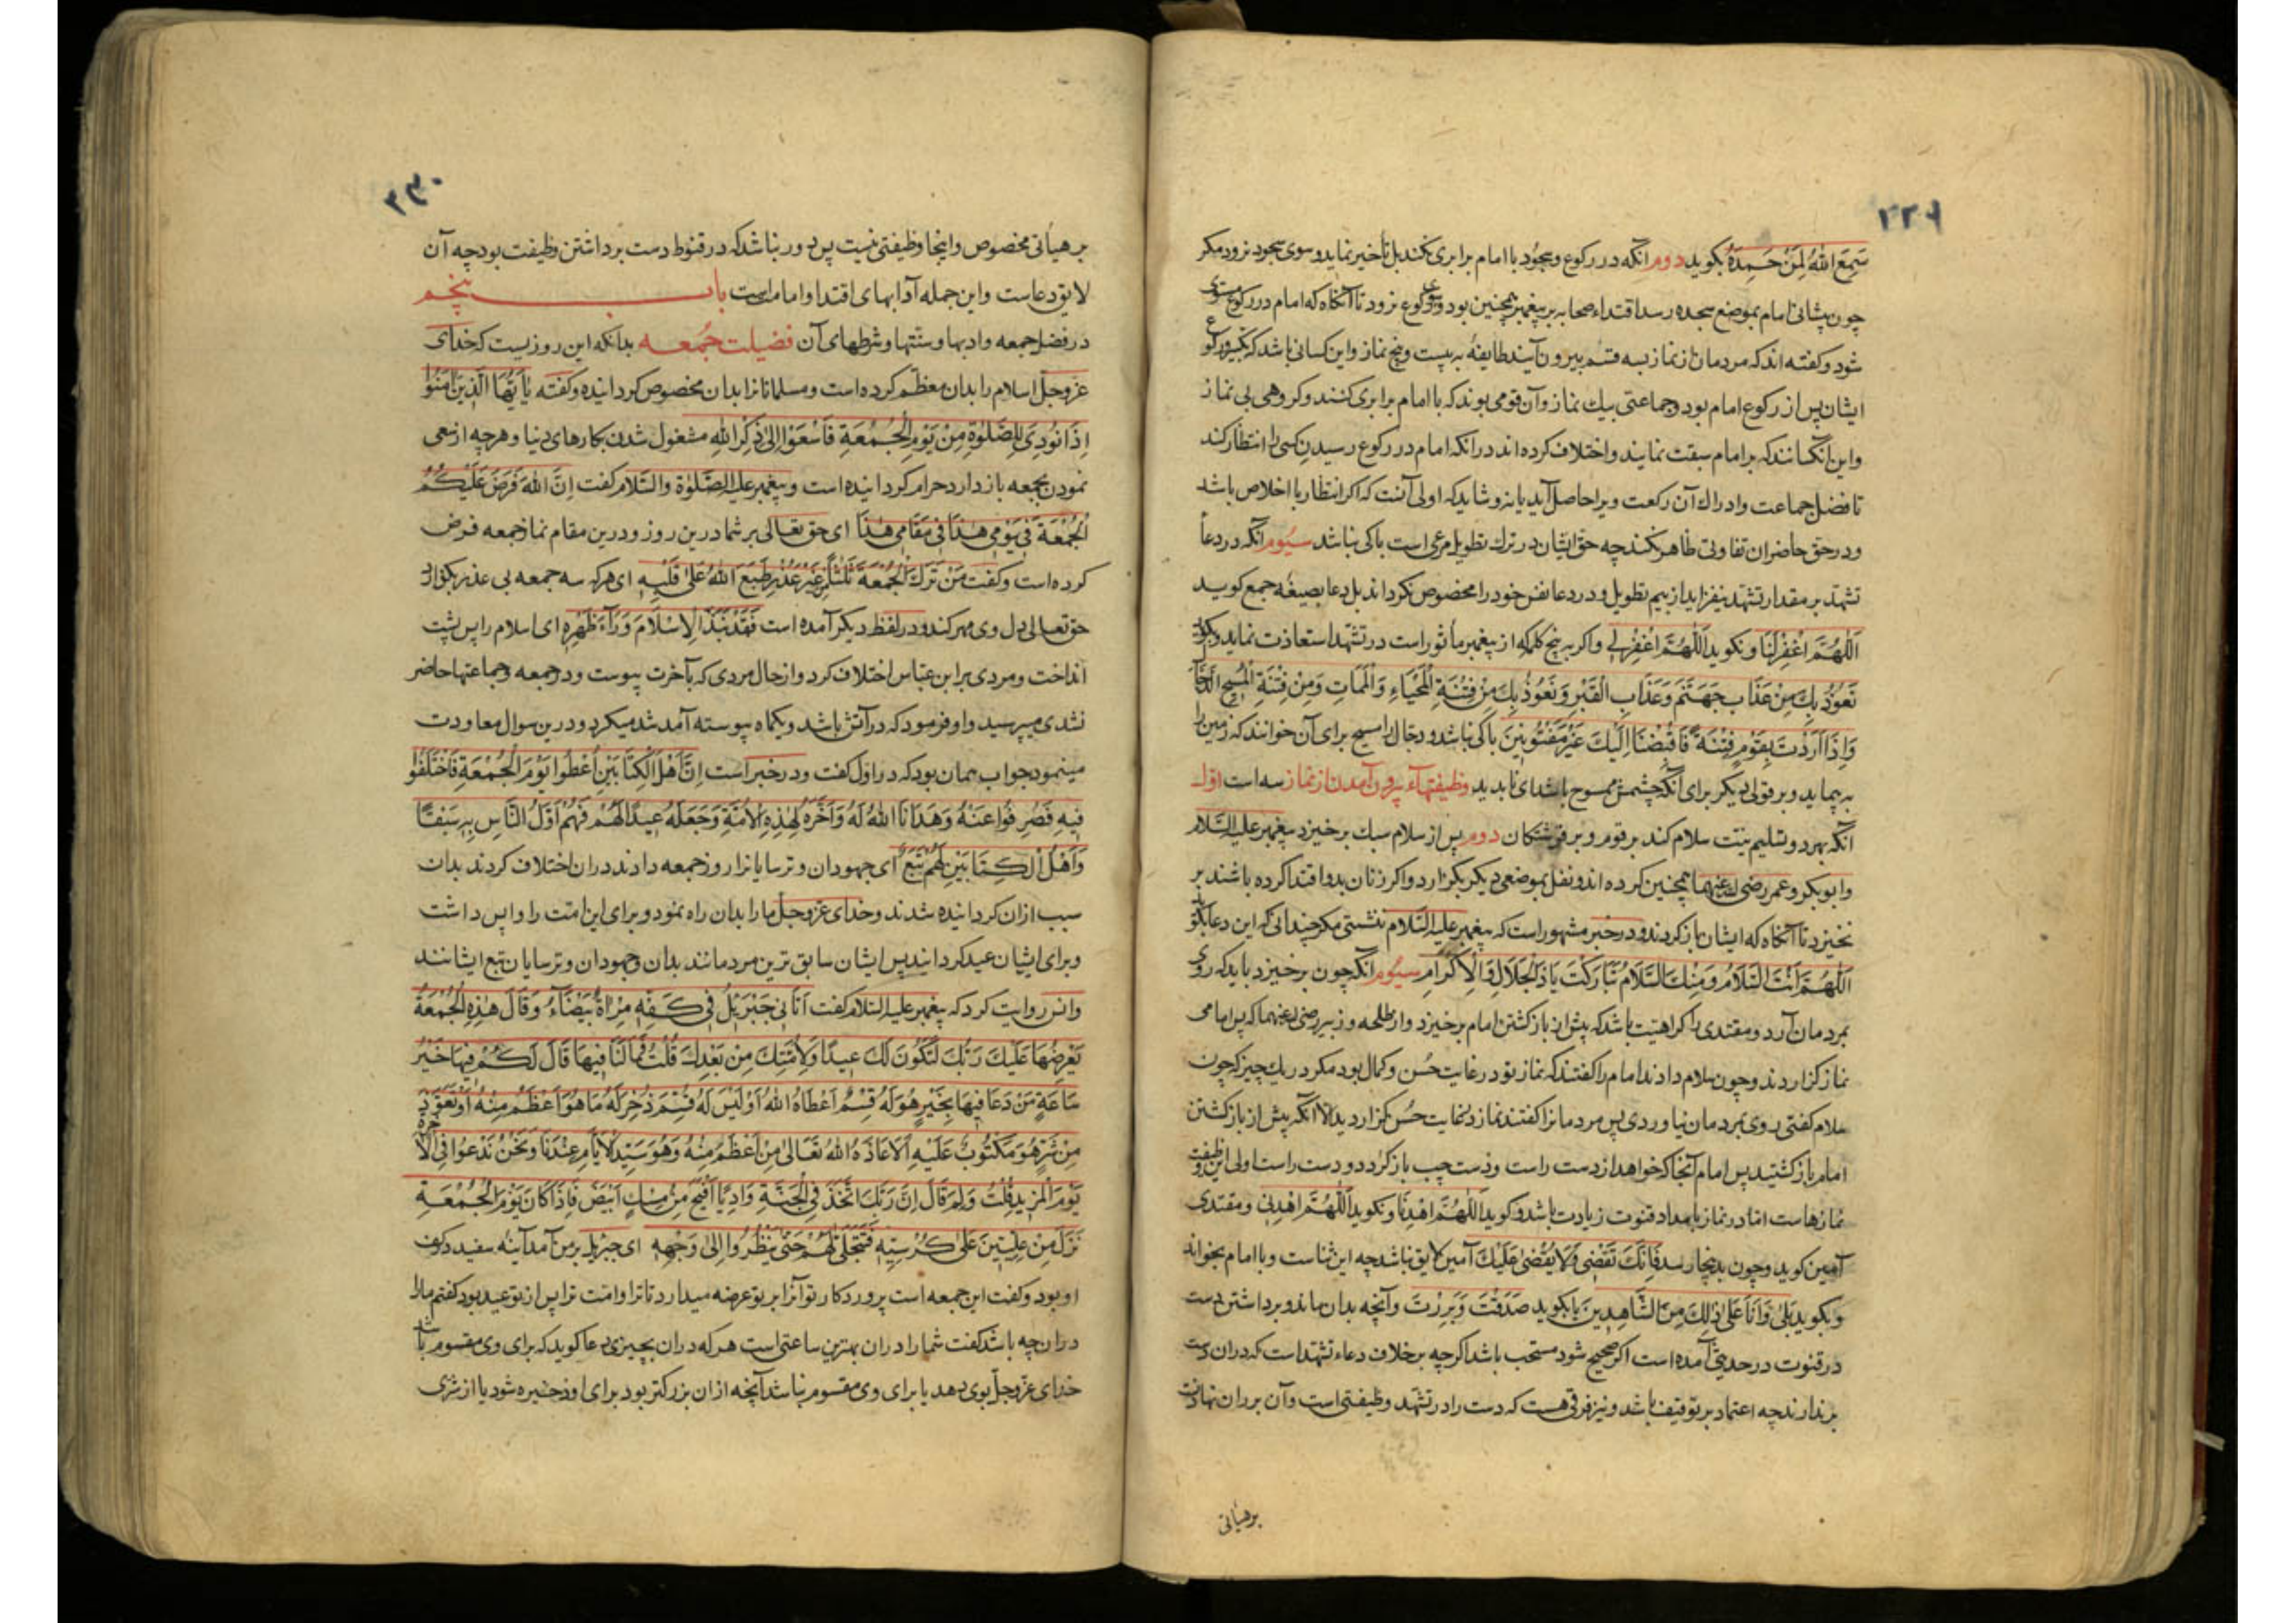 ۲۲۹
سَمِعَ اللهُ لِمَنْ حَمِدَهُ بکوید دوم آنکه در رکوع وسجود با امام برابری نکند بل تأخیر نماید وسوی سجود نرود مکر
چون پیشانی امام بموضع سجده رسد اقتداء صحابه بر پیغمبر همچنین بود وسوی رکوع نرود تا آنکاه که امام در رکوع مستوی
شود وکفته اند که مردمان از نماز بسه قسم بیرون آیند طایفهٔ به بیست وپنج نماز واین کسانی باشد که تکبیر ورکوع
ایشان پس از رکوع امام بود وجماعتی بیك نماز وآن قومی بوند که با امام برابری کنند وکروهی بی نماز
واین آنکسانند که بر امام سبقت نمایند واختلاف کرده اند در آنکه امام در رکوع رسیدن کسی را انتظار کند
تا فضل جماعت وادراك آن رکعت ویرا حاصل آید یا نه وشاید که اولی آنست که اکر انتظار با اخلاص باشد
ودر حق حاضران تفاوتی ظاهر نکند چه حق ایشان در ترك تطویل مرعی است باکی نباشد سیوم آنکه در دعاء
تشهد بر مقدار تشهد نیفزاید از بیم تطویل ودر دعا نفس خود را مخصوص نکرداند بل دعا بصیغهٔ جمع کوید
اَللّٰهُمَّ اغْفِرْ لَنَا ونکوید اَللّٰهُمَّ اغْفِرْ لِی واکر به پنج کلمه که از پیغمبر مأثور است در تشهد استعاذت نماید وبکوید
نَعُوذُ بِكَ مِنْ عَذَابِ جَهَنَّمَ وَعَذَابِ الْقَبْرِ وَنَعُوذُ بِكَ مِنْ فِتْنَةِ الْمَحْیَاءِ وَالْمَمَاتِ وَمِنْ فِتْنَةِ الْمَسِیحِ الدَّجَّالِ
وَاِذَا اَرَدْتَ بِقَوْمٍ فِتْنَةً فَاقْبِضْنَا اِلَیْكَ غَیْرَ مَفْتُونِینَ باکی نباشد ودجال را مسیح برای آن خوانند که زمین را
به پیماید وبر قولی دیکر برای آنکه چشمش ممسوح باشد ای ناپدید وظیفتهاء بیرون آمدن از نماز سه است اول
آنکه بهر دو تسلیم نیت سلام کند بر قوم وبر فرشتکان دوم پس از سلام سبك برخیزد پیغمبر علیه السّلام
وابوبکر وعمر رضی الله عنهما همچنین کرده اند ونفل بموضعی دیکر بکزارد واکر زنان بدو اقتدا کرده باشند بر
نخیزد تا آنکاه که ایشان باز کردند ودر خبر مشهور است که پیغمبر علیه السّلام ننشستی مکر چندانی که این دعا بکوید
اَللّٰهُمَّ اَنْتَ السَّلَامُ وَمِنْكَ السَّلَامُ تَبَارَکْتَ یَاذَا الْجَلَالِ وَالْاِکْرَامِ سیوم آنکه چون برخیزد باید که روی
بمردمان آرد ومقتدی را کراهیت باشد که پیش از باز کشتن امام برخیزد واز طلحه وزبیر رضی الله عنهما که پس امامی
نماز کزاردند وچون سلام دادند امام را کفتند که نماز تو در غایت حسن وکمال بود مکر در یك چیز که چون
سلام کفتی روی بمردمان نیاوردی پس مردمانرا کفتند نماز در غایت حسن کزاردید الا آنکه پیش از باز کشتن
امام باز کشتید پس امام آنجا که خواهد از دست راست ودست چپ باز کردد ودست راست اولی این وظیفت
نمازهاست اما در نماز بامداد قنوت زیادت باشد وکوید اَللّٰهُمَّ اهْدِنَا ونکوید اَللّٰهُمَّ اهْدِنِی ومقتدی
آمین کوید وچون بدینجا رسد فَاِنَّكَ تَقْضِی وَلَا یُقْضٰی عَلَیْكَ آمین لایق نباشد چه این ثناست وبا امام بخواند
وبکوید بَلٰی وَاَنَا عَلٰی ذٰلِكَ مِنَ الشَّاهِدِینَ یا بکوید صَدَقْتَ وَبَرِرْتَ وآنچه بدان ماند وبرداشتن دست
در قنوت در حدیثی آمده است اکر صحیح شود مستحب باشد اکر چه بر خلاف دعاء تشهد است که دران دست
برندارند چه اعتماد بر توقیف باشد ونیز فرقی هست که دست را در تشهد وظیفتی است وآن بر ران نهادنست
برهیأتی
۲۳۰
بر هیأتی مخصوص واینجا وظیفتی نیست پس دور نباشد که در قنوط دست برداشتن وظیفت بود چه آن
لایق دعاست واین جمله آدابهای اقتدا وامامراست باب پنجم
در فضل جمعه وادبها وسنتها وشرطهای آن فضیلت جمعه بدانکه این روزیست که خدای
عزوجل اسلام را بدان معظّم کرده است ومسلمانانرا بدان مخصوص کردانیده وکفته یَا اَیُّهَا الَّذِینَ اٰمَنُوا
اِذَا نُودِیَ لِلصَّلٰوةِ مِنْ یَوْمِ الْجُمُعَةِ فَاسْعَوْا اِلٰی ذِکْرِ اللهِ مشغول شدن بکارهای دنیا وهرچه از سعی
نمودن بجمعه باز دارد حرام کردانیده است وپیغمبر علیه الصّلوٰة والسّلام کفت اِنَّ اللهَ فَرَضَ عَلَیْکُمُ
الْجُمُعَةَ فِی یَوْمِی هٰذَا فِی مَقَامِی هٰذَا ای حق تعالی بر شما درین روز ودرین مقام نماز جمعه فرض
کرده است وکفت مَنْ تَرَكَ الْجُمُعَةَ ثَلٰثًا مِنْ غَیْرِ عُذْرٍ طَبَعَ اللهُ عَلٰی قَلْبِهِ ای هرکه سه جمعه بی عذر بکزارد
حق تعالی دل وی مهر کند ودر لفظ دیکر آمده است فَقَدْ نَبَذَ الْاِسْلَامَ وَرَاءَ ظَهْرِهِ ای اسلام را پس پشت
انداخت ومردی بر ابن عباس اختلاف کرد واز حال مردی که بآخرت پیوست ودر جمعه وجماعتها حاضر
نشدی میپرسید واو فرمود که در آتش باشد ویکماه پیوسته آمد شد میکرد ودرین سوال معاودت
مینمود جواب همان بود که در اول کفت ودر خبر است اِنَّ اَهْلَ الْکِتَابَیْنِ اُعْطُوا یَوْمَ الْجُمُعَةِ فَاخْتَلَفُوا
فِیهِ فَصُرِفُوا عَنْهُ وَهَدَانَا اللهُ لَهُ وَاَخَّرَهُ لِهٰذِهِ الْاُمَّةِ وَجَعَلَهُ عِیدًا لَهُمْ فَهُمْ اَوَّلُ النَّاسِ بِهِ سَبْقًا
وَاَهْلُ الْکِتَابَیْنِ لَهُمْ تَبَعٌ ای جهودان وترسایانرا روز جمعه دادند دران اختلاف کردند بدان
سبب ازان کردانیده شدند وخدای عزوجل مارا بدان راه نمود وبرای این امت را واپس داشت
وبرای ایشان عید کردانید پس ایشان سابق ترین مردمانند بدان وجهودان وترسایان تبع ایشانند
وانس روایت کرد که پیغمبر علیه السّلام کفت اَتَانِی جَبْرَئِیلُ فِی کَفِّهِ مِرْاٰةٌ بَیْضَاءُ وَقَالَ هٰذِهِ الْجُمُعَةُ
یَعْرِضُهَا عَلَیْكَ رَبُّكَ لِتَکُونَ لَكَ عِیدًا وَلِاُمَّتِكَ مِنْ بَعْدِكَ قُلْتُ فَمَا لَنَا فِیهَا قَالَ لَکُمْ فِیهَا خَیْرُ
سَاعَةٍ مَنْ دَعَا فِیهَا بِخَیْرٍ هُوَ لَهُ قِسْمٌ اَعْطَاهُ اللهُ اَوْ لَیْسَ لَهُ قِسْمٌ ذُخِرَ لَهُ مَا هُوَ اَعْظَمُ مِنْهُ اَوْ تَعَوَّذَ
مِنْ شَرٍّ هُوَ مَکْتُوبٌ عَلَیْهِ اِلَّا اَعَاذَهُ اللهُ تَعَالٰی مِنْ اَعْظَمَ مِنْهُ وَهُوَ سَیِّدُ الْاَیَّامِ عِنْدَنَا وَنَحْنُ نَدْعُوا فِی الْاٰخِرَةِ
یَوْمَ الْمَزِیدِ قُلْتُ وَلِمَ قَالَ اِنَّ رَبَّكَ اتَّخَذَ فِی الْجَنَّةِ وَادِیًا اَفْیَحَ مِنْ مِسْكٍ اَبْیَضَ فَاِذَا کَانَ یَوْمُ الْجُمُعَةِ
نَزَلَ مِنْ عِلِّیِّینَ عَلٰی کُرْسِیِّهِ فَتَجَلّٰی لَهُمْ حَتّٰی یَنْظُرُوا اِلٰی وَجْهِهِ ای جبریل بر من آمد آینه سفید در کف
او بود وکفت این جمعه است پروردکار تو آنرا بر تو عرضه میدارد تا ترا وامت ترا پس از تو عید بود کفتم مارا
دران چه باشد کفت شمارا دران بهترین ساعتی است هرکه دران بچیزی دعا کوید که برای وی مقسوم باشد
خدای عزّوجلّ بوی دهد یا برای وی مقسوم نباشد آنچه ازان بزرکتر بود برای او ذخیره شود یا از شرّی